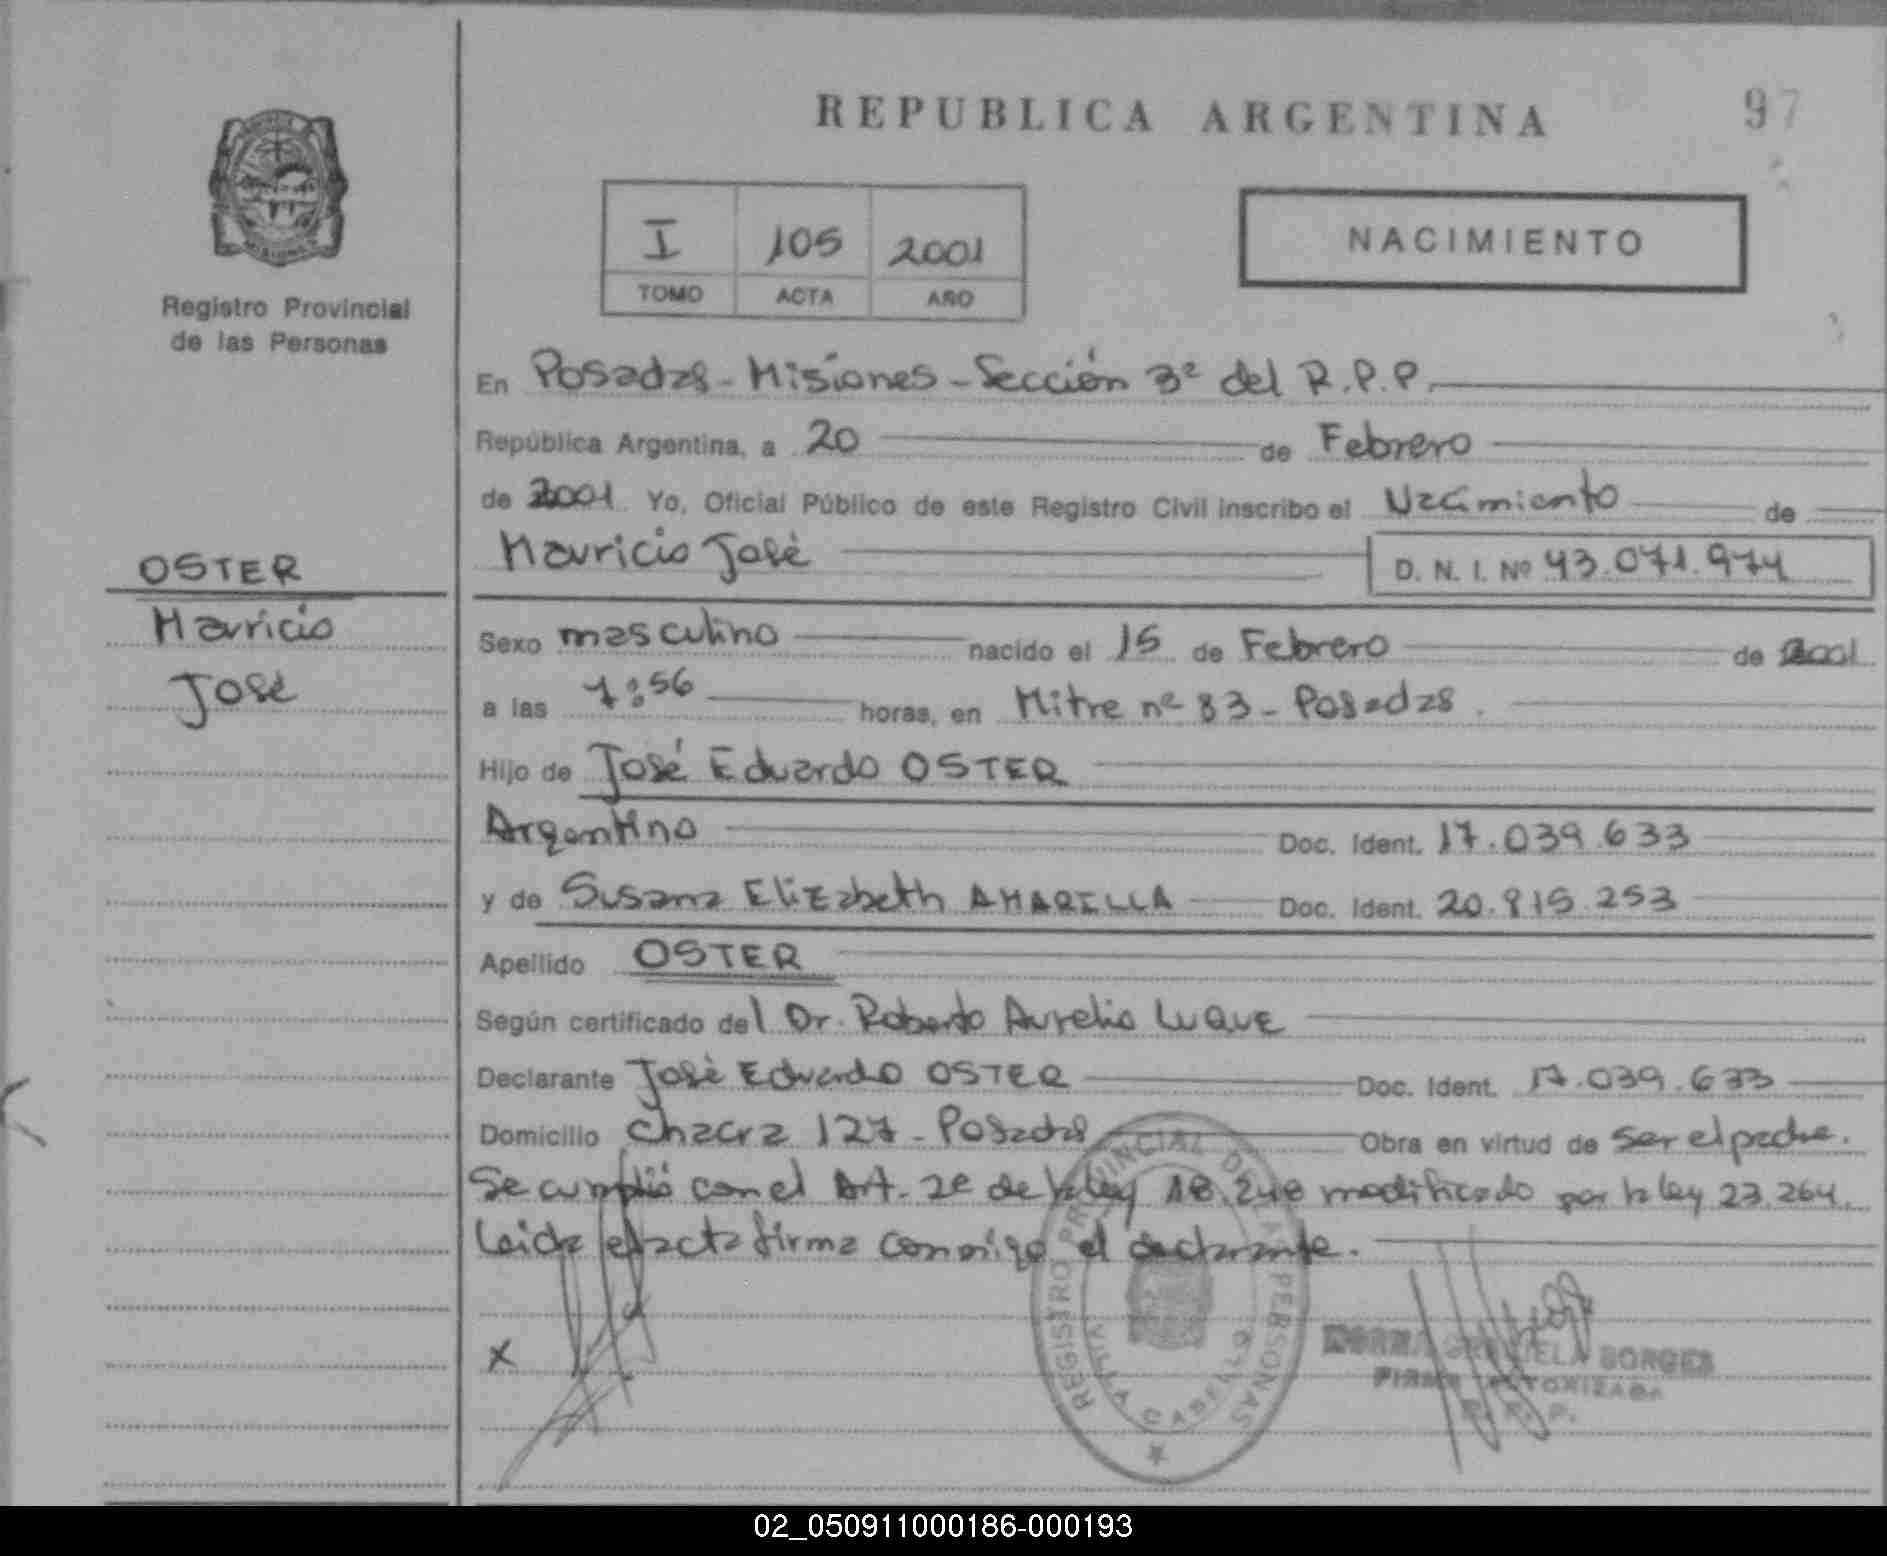 REPUBLICA ARGENTINA
97
I 105 2001
TOMO ACTA AÑO
NACIMIENTO
Registro Provincial
de las Personas
En Posadas - Misiones - Sección 3ª del R.P.P.
República Argentina, a 20 de Febrero
de 2001 Yo, Oficial Público de este Registro Civil inscribo el Nacimiento de
Mauricio José D. N. I. Nº 43.071.974
OSTER
Mauricio
José
Sexo masculino nacido el 15 de Febrero de 2001
a las 7:56 horas, en Mitre nº 83 - Posadas.
Hijo de José Eduardo OSTER
Argentino Doc. Ident. 17.039.633
y de Susana Elizabeth AMARILLA Doc. Ident. 20.815.253
Apellido OSTER
Según certificado del Dr. Roberto Aurelio Luque
Declarante José Eduardo OSTER Doc. Ident. 17.039.633
Domicilio Chacra 127 - Posadas Obra en virtud de ser el padre.
Se cumplió con el Art. 2º de la ley 18.248 modificado por la ley 23.264.
Leida el acta firma conmigo el declarante.
X
REGISTRO PROVINCIAL DE LAS PERSONAS
VILLA CABELLO
NORMA GRACIELA BORGES
FIRMA AUTORIZADA
R. P. P.
02_050911000186-000193